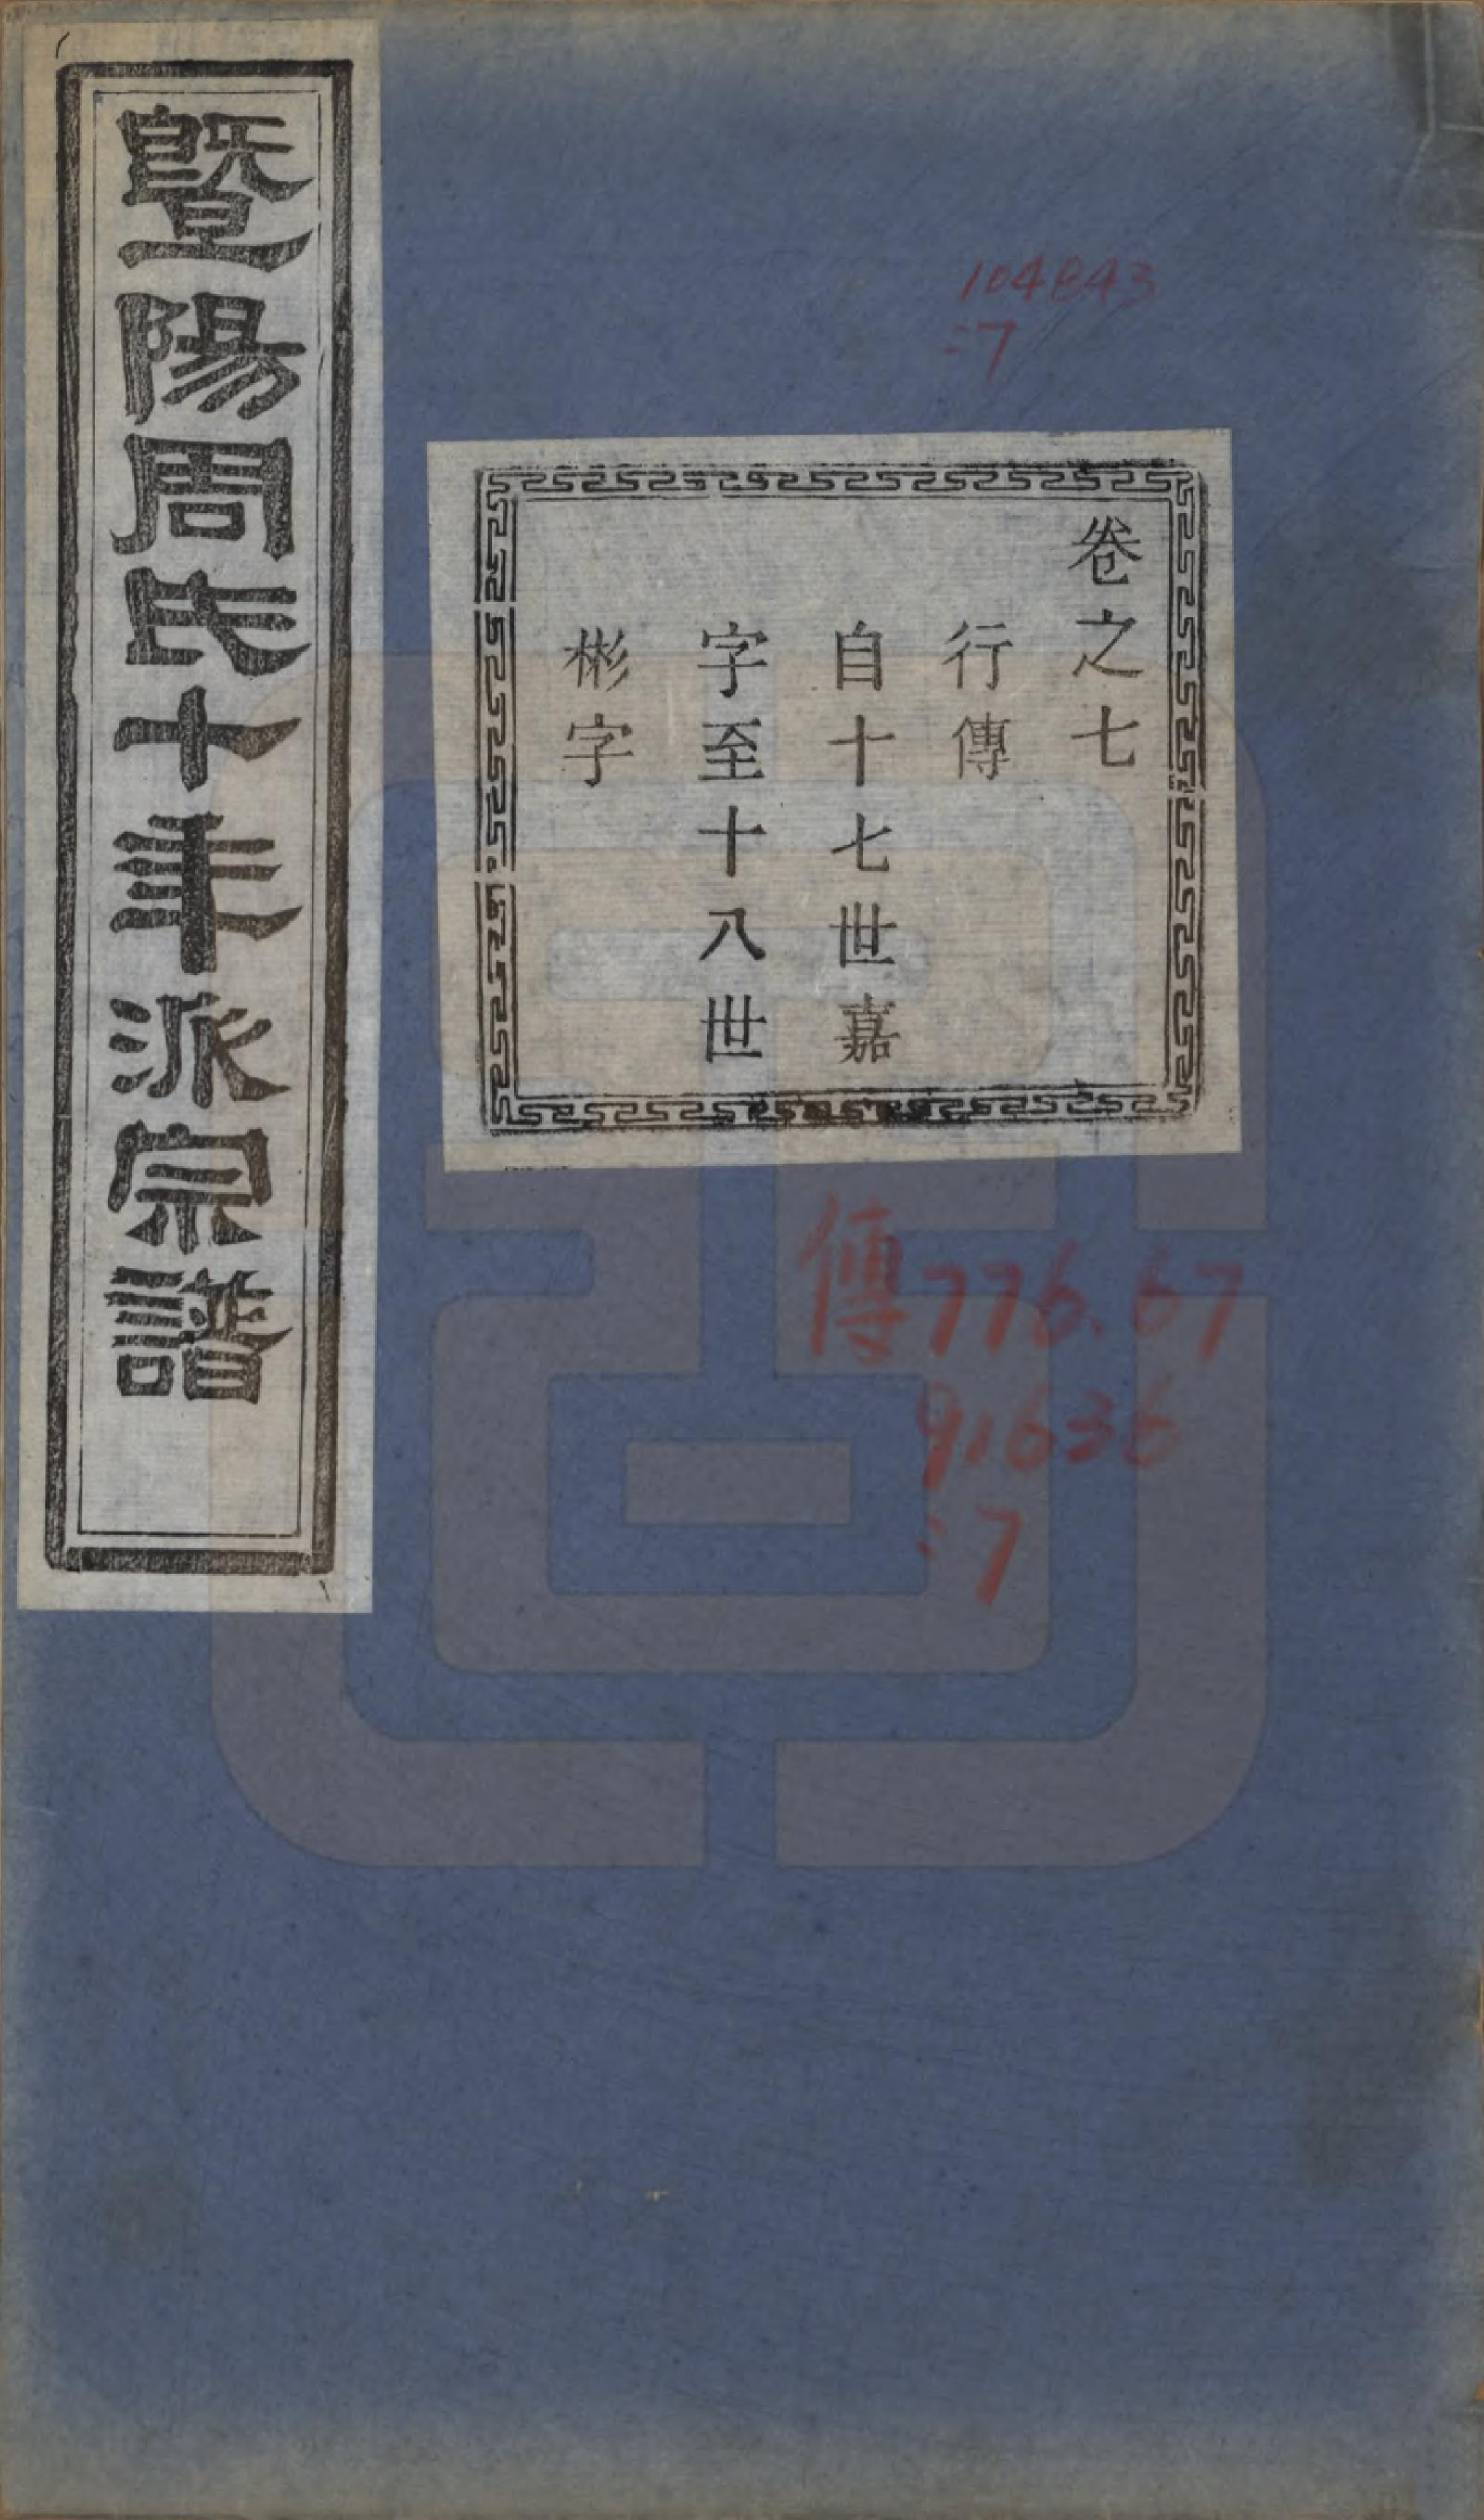 暨陽周氏十年派宗譜
卷之七
行傳
自十七世嘉
字至十八世
彬字
104843
:7
傳776.67
91636
:7